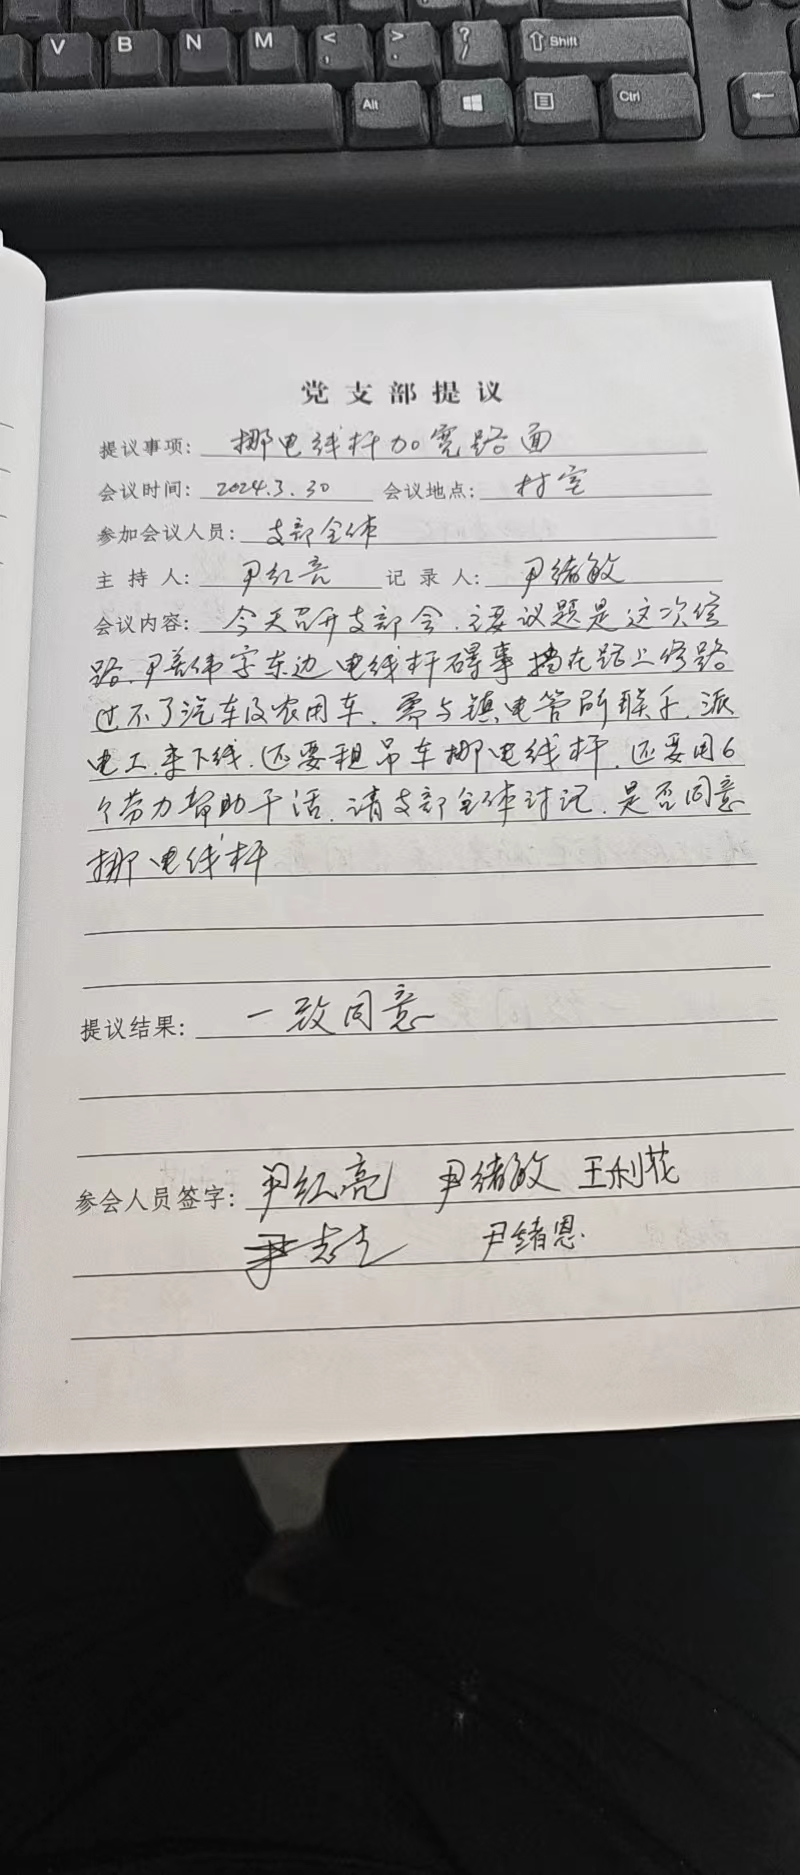 V B N M < , > . ? / Shift
Alt Ctrl
党支部提议
提议事项：挪电线杆加宽路面
会议时间：2024.3.30 会议地点：村室
参加会议人员：支部全体
主持人：尹红亮 记录人：尹绪敏
会议内容：今天召开支部会，主要议题是这次修
路，尹善伟字东边电线杆碍事挡在路上修路
过不了汽车及农用车，需与镇电管所联系，派
电工来下线，还要租吊车挪电线杆，还要用6
个劳力帮助干活，请支部全体讨记，是否同意
挪电线杆
提议结果：一致同意
参会人员签字：尹红亮 尹绪敏 王利花
尹绪恩